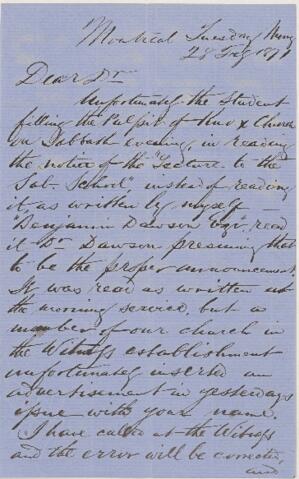 Montreal Tuesday Mrng
28 Feby 1871
Dear Dr
Unfortunately the Student
filling the Pulpit of Knox Church
on Sabbath Evening, in reading
the notice of the "Lecture to the
Sab. School", instead of reading
it, as written by myself
Benjamin Dawson Esqr. read
it Dr Dawson presuming that
to be the proper announcement
It was read as written at
the morning service, but a
member of our church in
the Witness establishment
unfortunately inserted an
advertisement in yesterdays
issue with your name.
I have called at the Witness
and the error will be corrected,
and